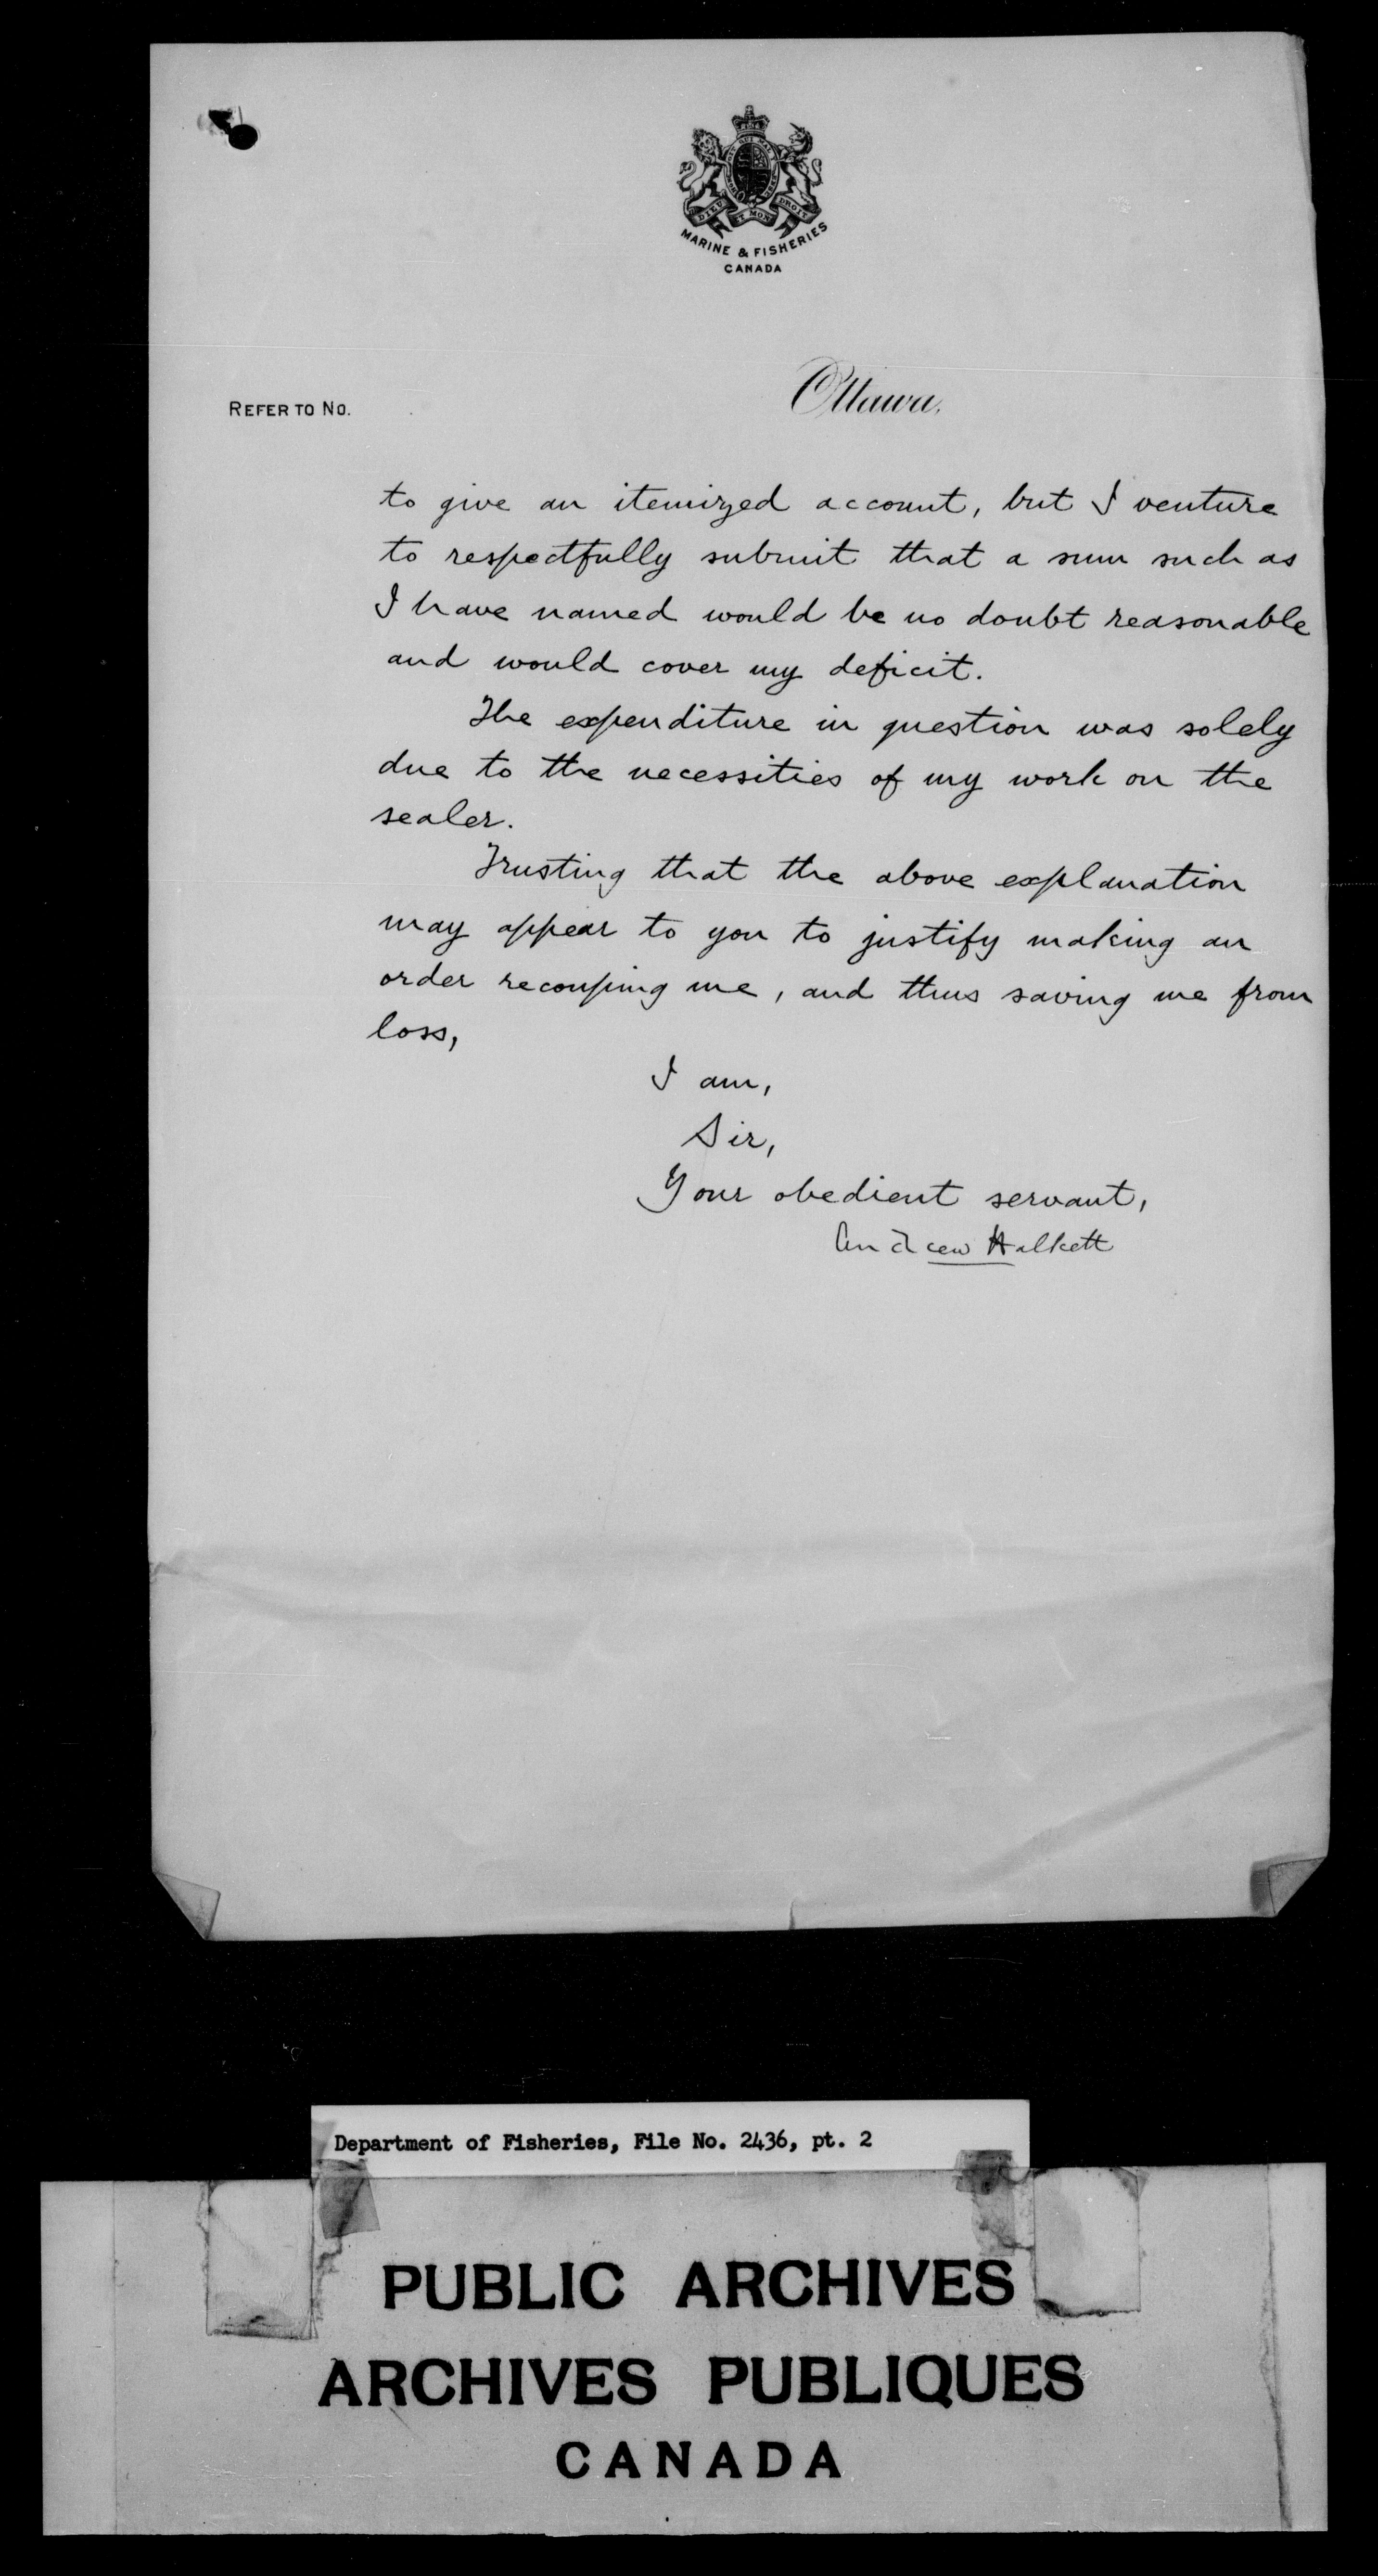 HONI SOIT QUI MAL Y PENSE
DIEU ET MON DROIT
MARINE & FISHERIES
CANADA
Ottawa,
REFER TO NO.
to give an itemized account, but I venture
to respectfully submit that a sum such as
I have named would be no doubt reasonable
and would cover my deficit.
The expenditure in question was solely
due to the necessities of my work on the
sealer.
Trusting that the above explanation
may appear to you to justify making an
order recouping me, and thus saving me from
loss,
I am,
Sir,
Your obedient servant,
Andrew Halkett
Department of Fisheries, File No. 2436, pt. 2
PUBLIC ARCHIVES
ARCHIVES PUBLIQUES
CANADA